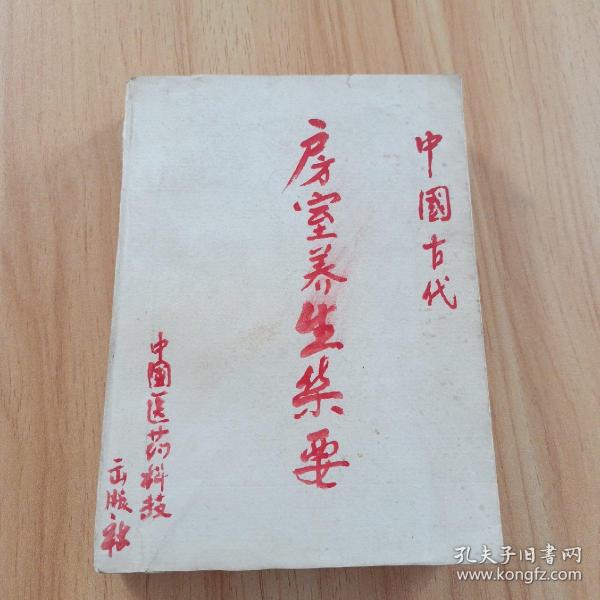 中國古代
房室养生集要
中國医药科技
出版社
孔夫子旧书网
www.kongfz.com